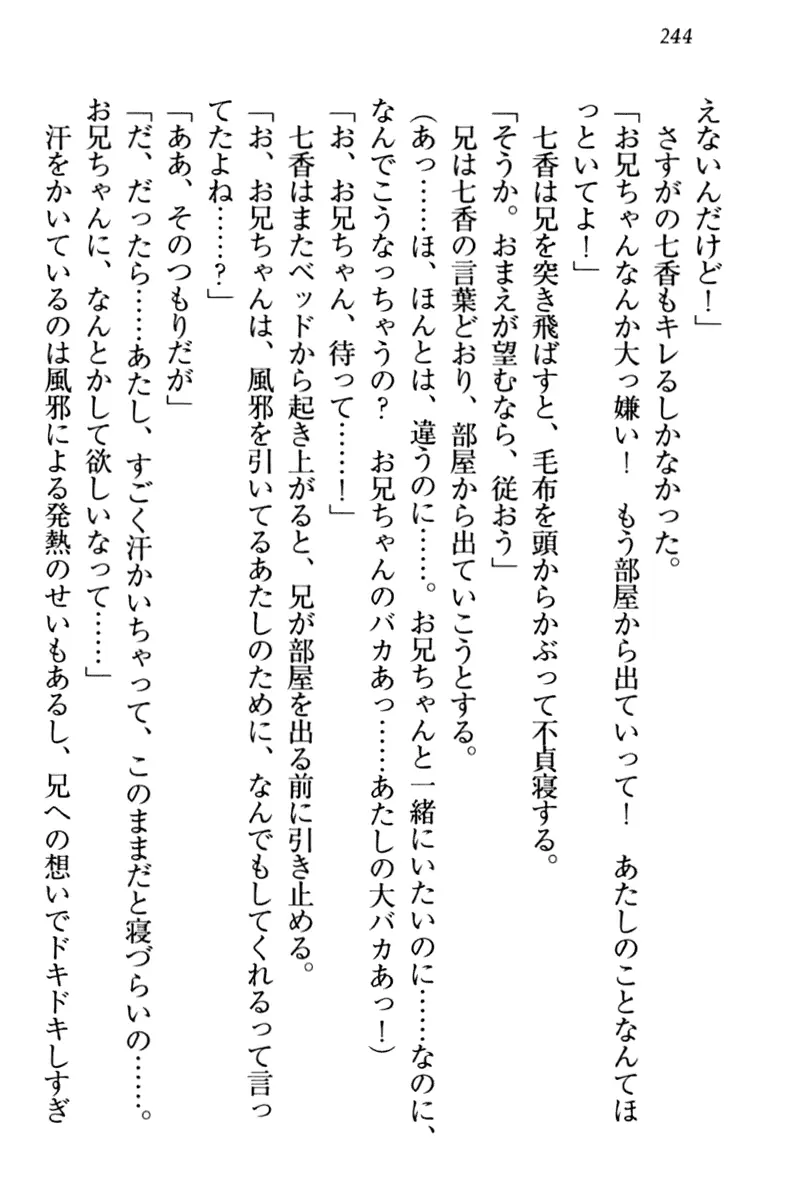 244
えないんだけど！」
　さすがの七香もキレるしかなかった。
「お兄ちゃんなんか大っ嫌い！　もう部屋から出ていって！　あたしのことなんてほ
っといてよ！」
　七香は兄を突き飛ばすと、毛布を頭からかぶって不貞寝する。
「そうか。おまえが望むなら、従おう」
　兄は七香の言葉どおり、部屋から出ていこうとする。
（あっ……ほ、ほんとは、違うのに……。お兄ちゃんと一緒にいたいのに……なのに、
なんでこうなっちゃうの？　お兄ちゃんのバカあっ……あたしの大バカあっ！）
「お、お兄ちゃん、待って……！」
　七香はまたベッドから起き上がると、兄が部屋を出る前に引き止める。
「お、お兄ちゃんは、風邪を引いてるあたしのために、なんでもしてくれるって言っ
てたよね……？」
「ああ、そのつもりだが」
「だ、だったら……あたし、すごく汗かいちゃって、このままだと寝づらいの……。
お兄ちゃんに、なんとかして欲しいなって……」
　汗をかいているのは風邪による発熱のせいもあるし、兄への想いでドキドキしすぎ